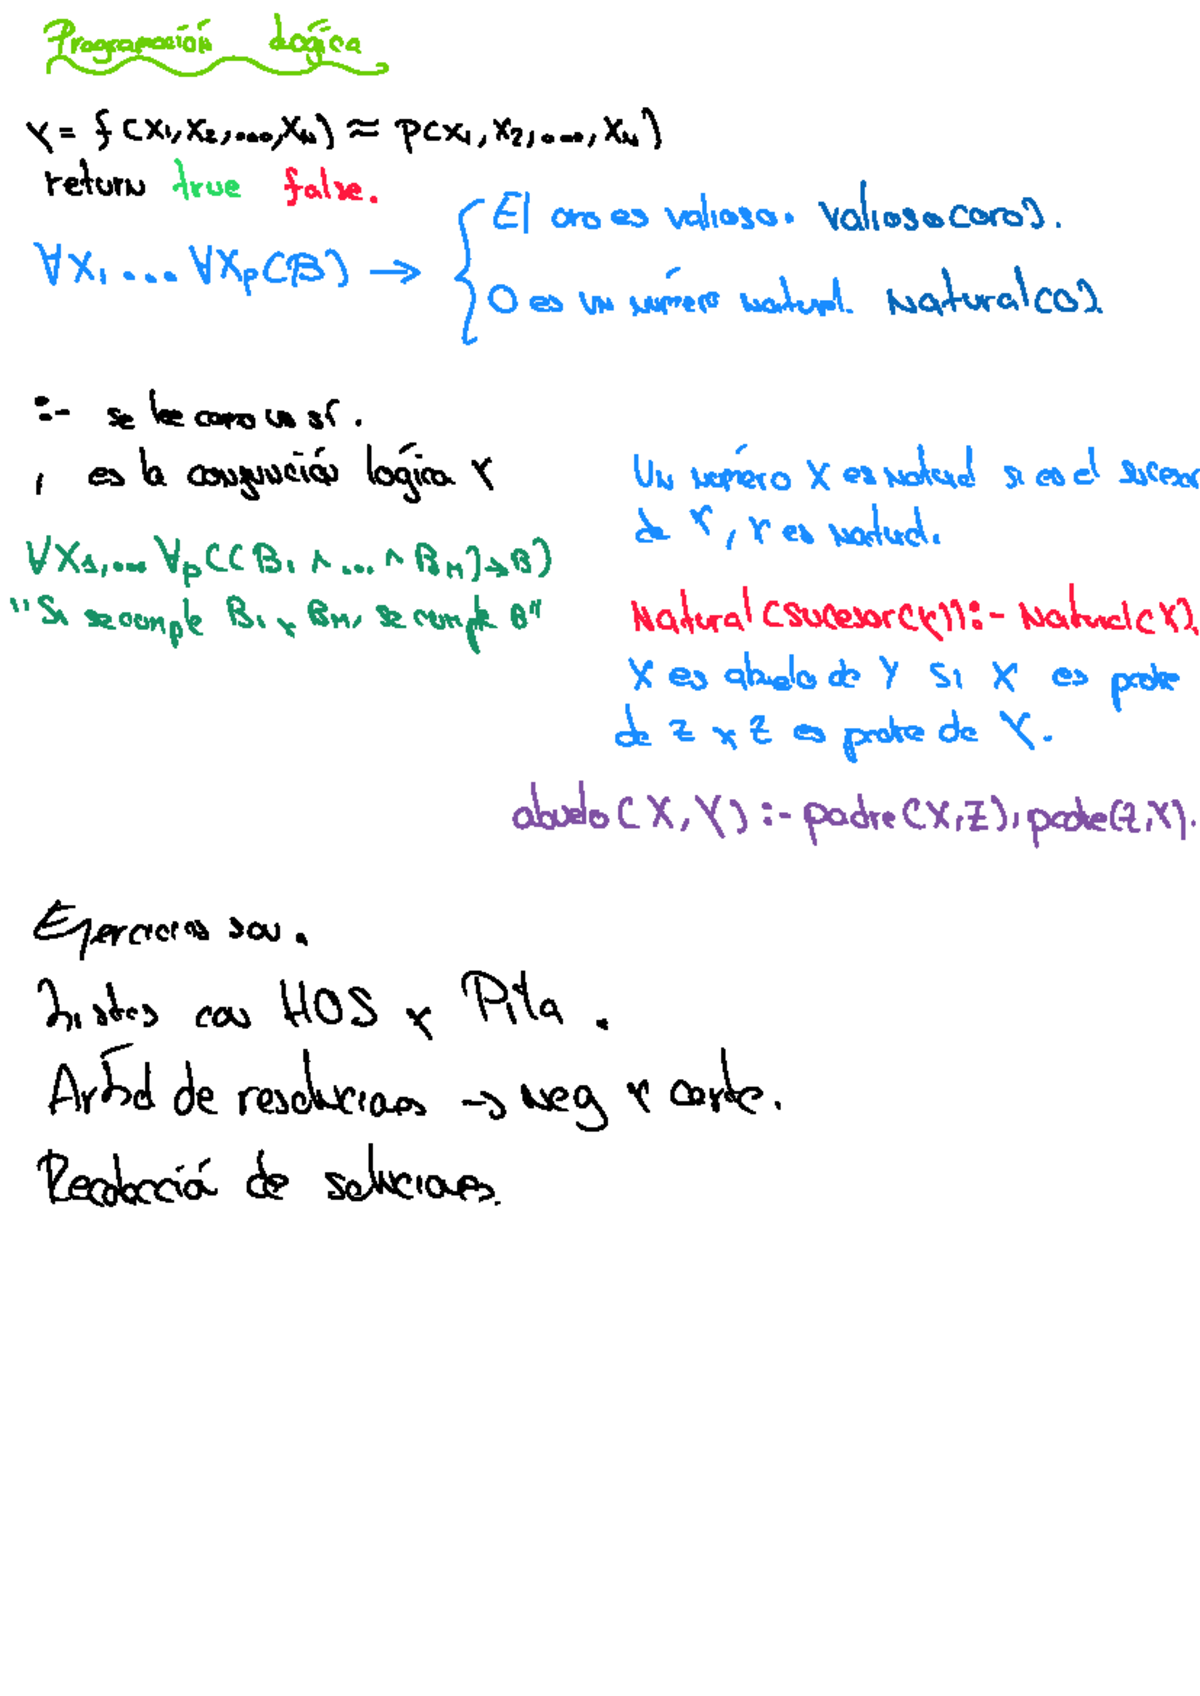 Programación Lógica
Y = f(X1, X2, ..., XN) ≈ P(X1, X2, ..., XN)
return true false.
∀X1 ... ∀Xp(B) →
El oro es valioso. Valioso(oro).
0 es un número natural. Natural(0).
:- se lee como un sí.
, es la conjunción lógica Y
∀X1, ... ∀p((B1 ∧ ... ∧ BM) → B)
"Si se cumple B1 y BM, se cumple B"
Un número X es natural si es el sucesor
de Y, Y es natural.
Natural(sucesor(Y)):- Natural(X).
X es abuelo de Y si X es padre
de Z y Z es padre de Y.
abuelo(X,Y) :- padre(X,Z), padre(Z,Y).
Ejercicios son.
Listas con HOS y Pila.
Árbol de resoluciones → neg y corte.
Recolección de soluciones.